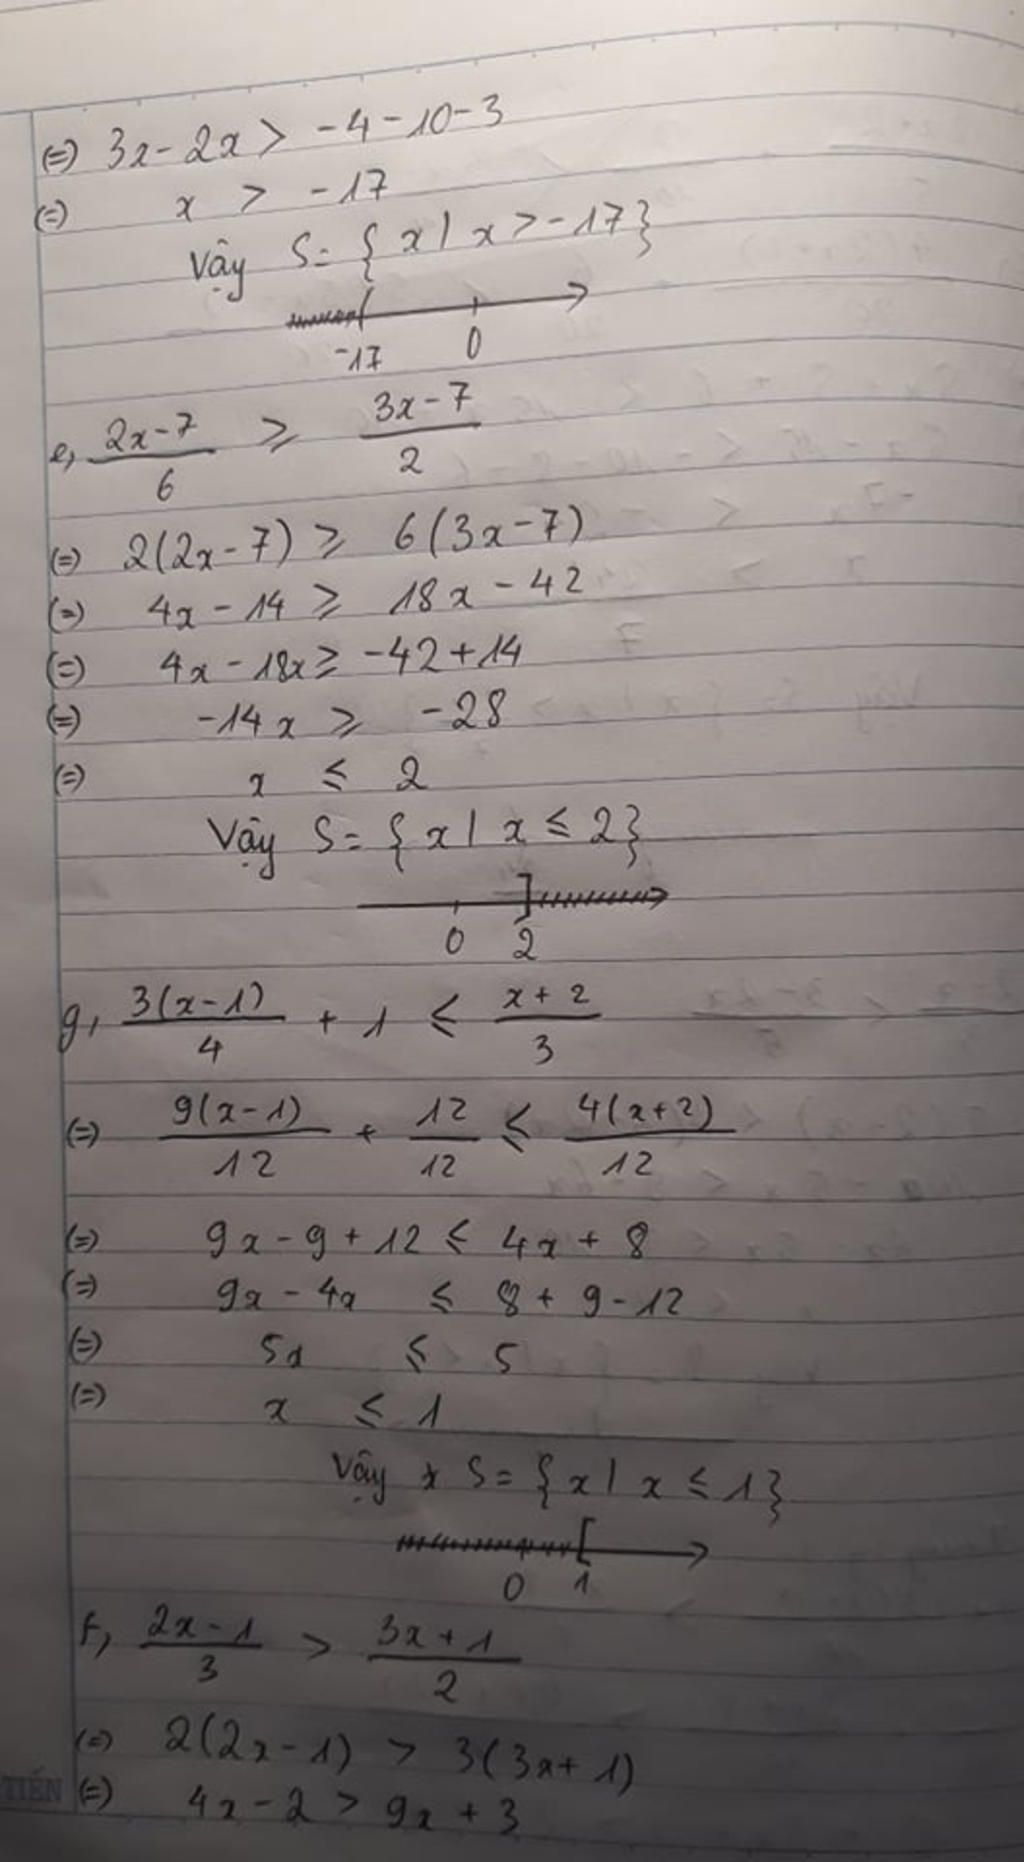 (=) 3x - 2x > -4 - 10 - 3
(=) x > -17
Vậy S = { x | x > -17 }
-17 0
e, (2x-7)/6 ≥ (3x-7)/2
(=) 2(2x-7) ≥ 6(3x-7)
(=) 4x - 14 ≥ 18x - 42
(=) 4x - 18x ≥ -42 + 14
(=) -14x ≥ -28
(=) x ≤ 2
Vậy S = { x | x ≤ 2 }
0 2
g, 3(x-1)/4 + 1 ≤ (x+2)/3
(=) 9(x-1)/12 + 12/12 ≤ 4(x+2)/12
(=) 9x - 9 + 12 ≤ 4x + 8
(=) 9x - 4x ≤ 8 + 9 - 12
(=) 5x ≤ 5
(=) x ≤ 1
Vậy S = { x | x ≤ 1 }
0 1
f, (2x-1)/3 > (3x+1)/2
(=) 2(2x-1) > 3(3x+1)
TIẾN (=) 4x - 2 > 9x + 3